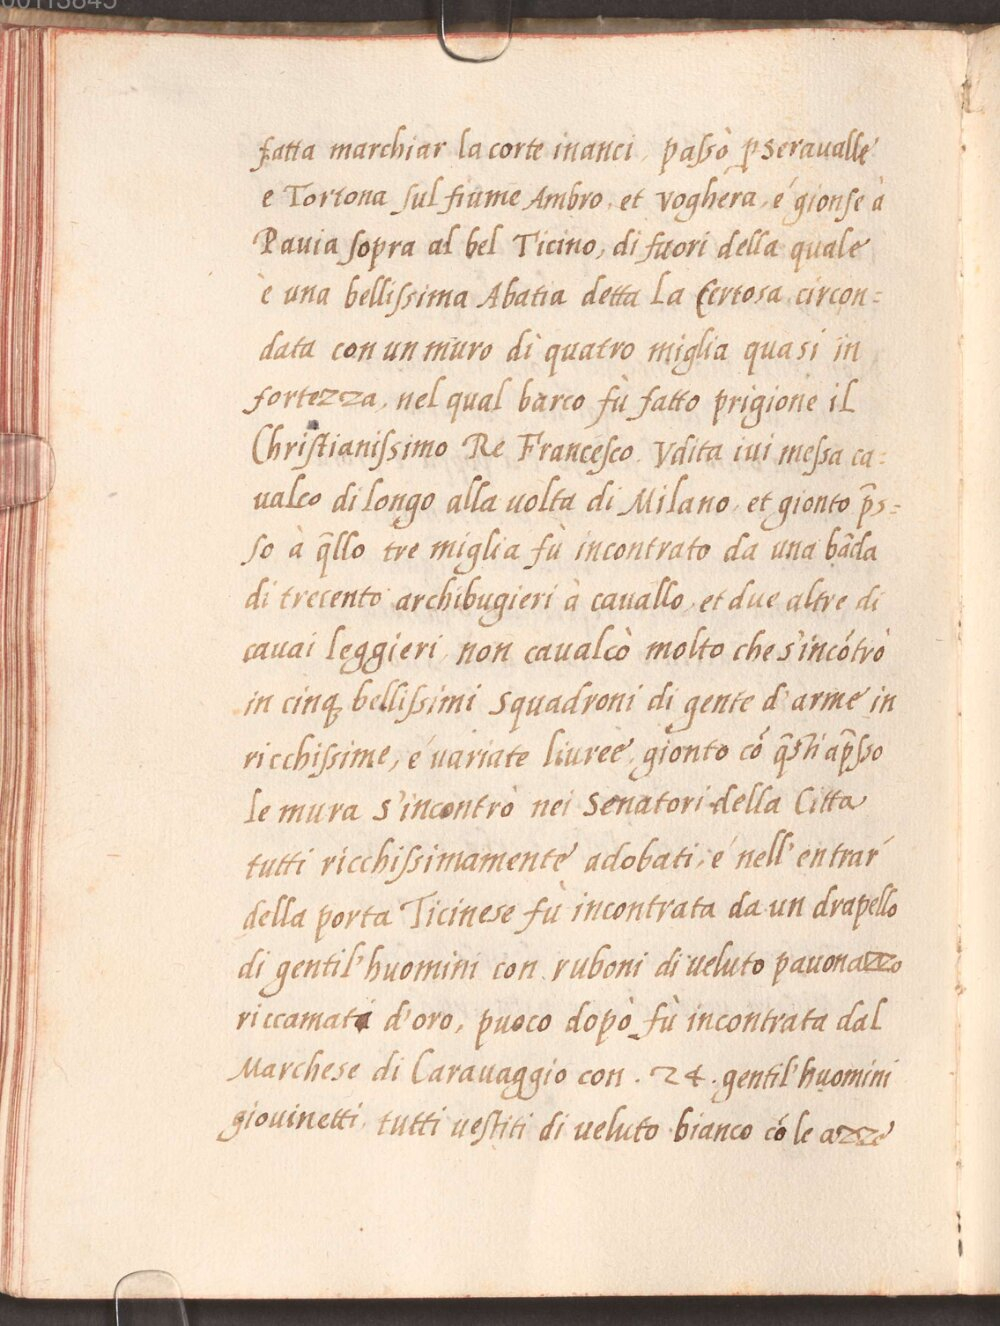 00113845
fatta marchiar la corte inanci, passò p̱ Seraualle
e Tortona sul fiume Ambro, et Voghera, é gionse à
Pauia sopra al bel Ticino, di fuori della quale
è una bellissima Abatia detta La Certosa circon=
data con un muro di quatro miglia quasi in
fortezza, nel qual barco fù fatto prigione il
Christianissimo Re Francesco. Vdita iui messa ca=
ualco di longo alla uolta di Milano, et gionto p̄s=
so à q̄llo tre miglia fù incontrato da una bāda
di trecento archibugieri à cauallo, et due altre di
cauai leggieri, non caualcò molto che s'incótrò
in cinq; bellissimi Squadroni di gente d'arme in
ricchissime, é uariate liuree, gionto có q̄sti ap̄sso
le mura s'incontrò nei Senatori della Citta
tutti ricchissimamente adobati, é nell'entrar
della porta Ticinese fù incontrata da un drapello
di gentil'huomini con ruboni di ueluto pauonazzo
riccamati d'oro, puoco dopò fù incontrata dal
Marchese di Carauaggio con .24. gentil'huomini
giouinetti, tutti uestiti di ueluto bianco có le azze